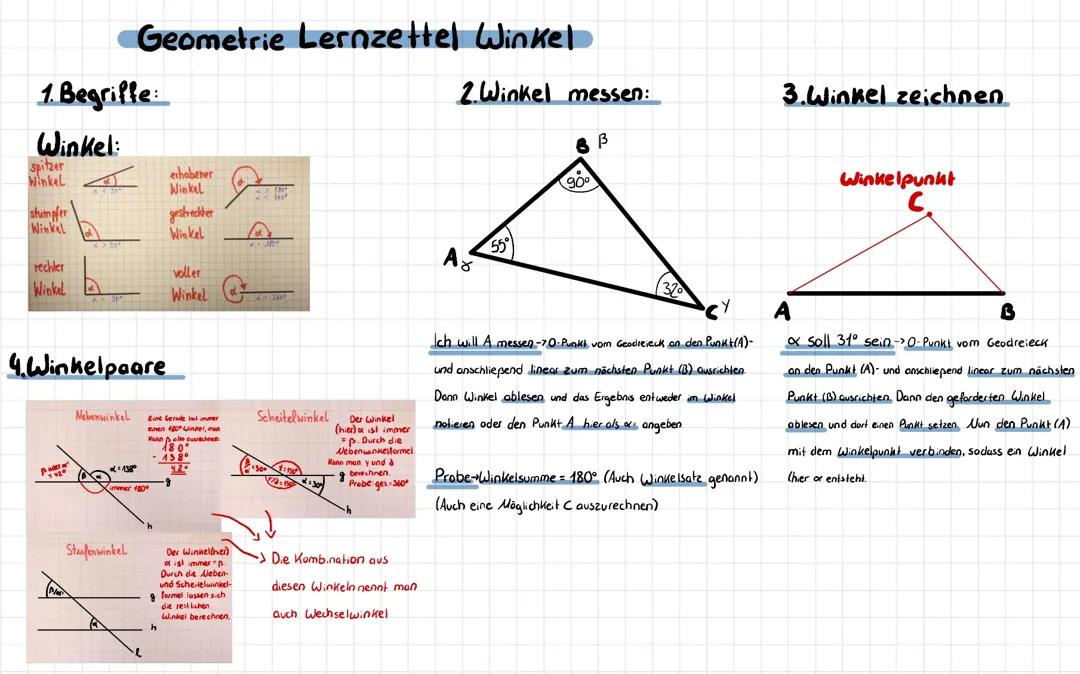 Geometrie Lernzettel Winkel
1. Begriffe:
Winkel:
spitzer
Winkel
α
α < 90°
erhabener
Winkel
α
α > 180°
α < 360°
stumpfer
Winkel
α
α > 90°
gestreckter
Winkel
α
α = 180°
rechter
Winkel
α
α = 90°
voller
Winkel
α
α = 360°
2. Winkel messen:
B β
90°
55°
A
32°
C γ
Ich will A messen → 0-Punkt vom Geodreieck an den Punkt (A)-
und anschließend linear zum nächsten Punkt (B) ausrichten.
Dann Winkel ablesen und das Ergebnis entweder im Winkel
notieren oder den Punkt A hier als α angeben
Probe → Winkelsumme = 180° (Auch Winkelsatz genannt)
(Auch eine Möglichkeit C auszurechnen)
3. Winkel zeichnen
Winkelpunkt
C
A
B
α soll 31° sein → 0-Punkt vom Geodreieck
an den Punkt (A)- und anschließend linear zum nächsten
Punkt (B) ausrichten. Dann den geforderten Winkel
ablesen und dort einen Punkt setzen. Nun den Punkt (A)
mit dem Winkelpunkt verbinden, sodass ein Winkel
(hier α entsteht.
4. Winkelpaare
Nebenwinkel
Eine Gerade hat immer
einen 180° Winkel, man
kann β also ausrechnen:
180°
- 138°
42°
α = 138°
β α
immer 180°
g
h
Scheitelwinkel
Der Winkel
(hier) α ist immer
= β. Durch die
Nebenwinkelformel
kann man γ und δ
berechnen.
Probe: ges = 360°
γ = 150°
α = 30°
g
h
Stufenwinkel
Der Winkel (hier)
α ist immer = β.
Durch die Neben-
und Scheitelwinkel-
formel lassen sich
die restlichen
Winkel berechnen.
β/α
α
g
h
l
Die Kombination aus
diesen Winkeln nennt man
auch Wechselwinkel